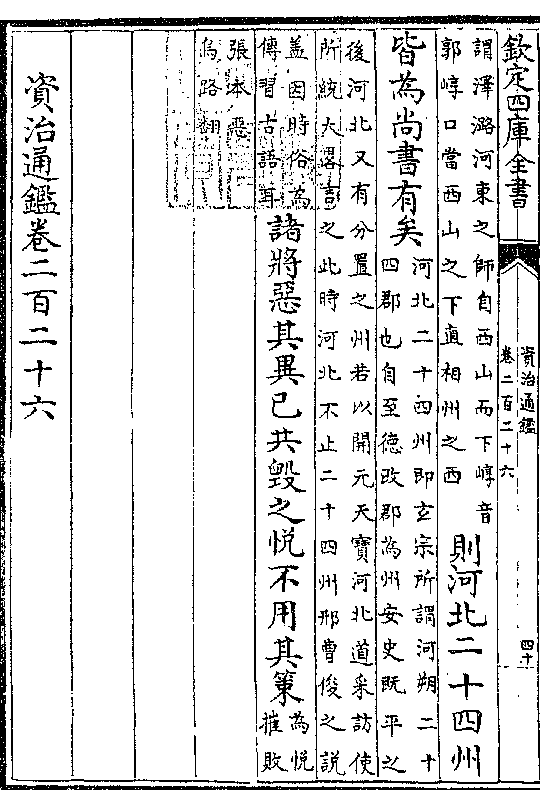 欽定四庫全書
資治通鑑
卷二百二十六
四十
謂澤潞河東之師自西山而下崞音
郭崞口當西山之下直相州之西
則河北二十四州
皆為尚書有矣
河北二十四州即玄宗所謂河朔二十
四郡也自至德改郡為州安史既平之
後河北又有分置之州若以開元天寶河北道采訪使
所統大畧言之此時河北不止二十四州邢曹俊之說
盖因時俗為
傳習古語耳
諸將惡其異己共毀之悅不用其策
為悅
摧敗
張本惡
烏路翻
資治通鑑卷二百二十六